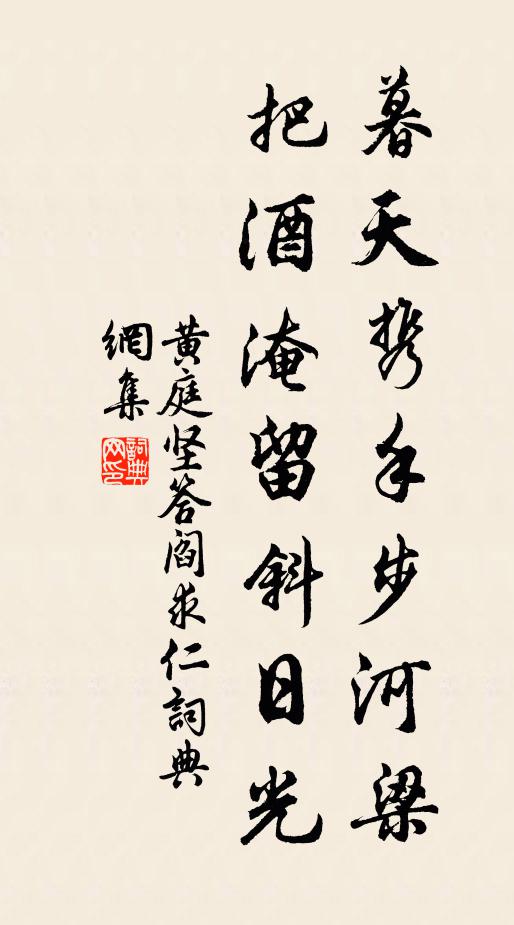 暮天携手步河梁
把酒淹留斜日光
黄庭坚答阎求仁詞典
網集
詞典网印